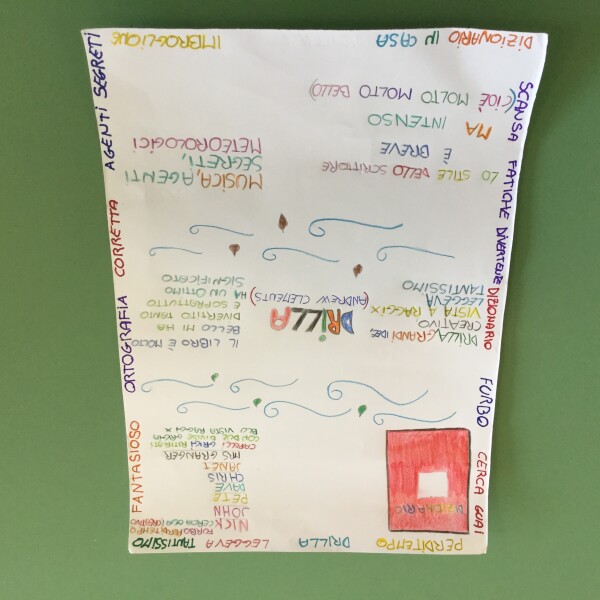 PERDITEMPO DRILLA LEGGEVA TANTISSIMO
DIZIONARIO
NICK FURBO PERDITEMPO
CERCA GUAI CREATIVO
JOHN
PETE
DAVE
CHRIS
JANET
MRS GRANGER
CAPELLI GRIGI RITIRATI
CON DUE DIVISE GRIGIA
BLU VISTA RAGGI X
DRILLA GRANDI IDEE,
CREATIVO
VISTA A RAGGI X
LEGGEVA
TANTISSIMO
DRILLA
(ANDREW CLEMENTS)
IL LIBRO È MOLTO
BELLO MI HA
DIVERTITO TANTO
E SOPRATTUTTO
HA UN OTTIMO
SIGNIFICATO
LO STILE DELLO SCRITTORE
È BREVE
MA INTENSO
(CIOÈ MOLTO BELLO)
MUSICA, AGENTI
SEGRETI,
METEOROLOGICI
DIZIONARIO IN CASA IMBROGLIQUE
SCANSA FATICHE DIVERTENTE DIZIONARIO FURBO CERCA GUAI
FANTASIOSO ORTOGRAFIA CORRETTA AGENTI SEGRETI